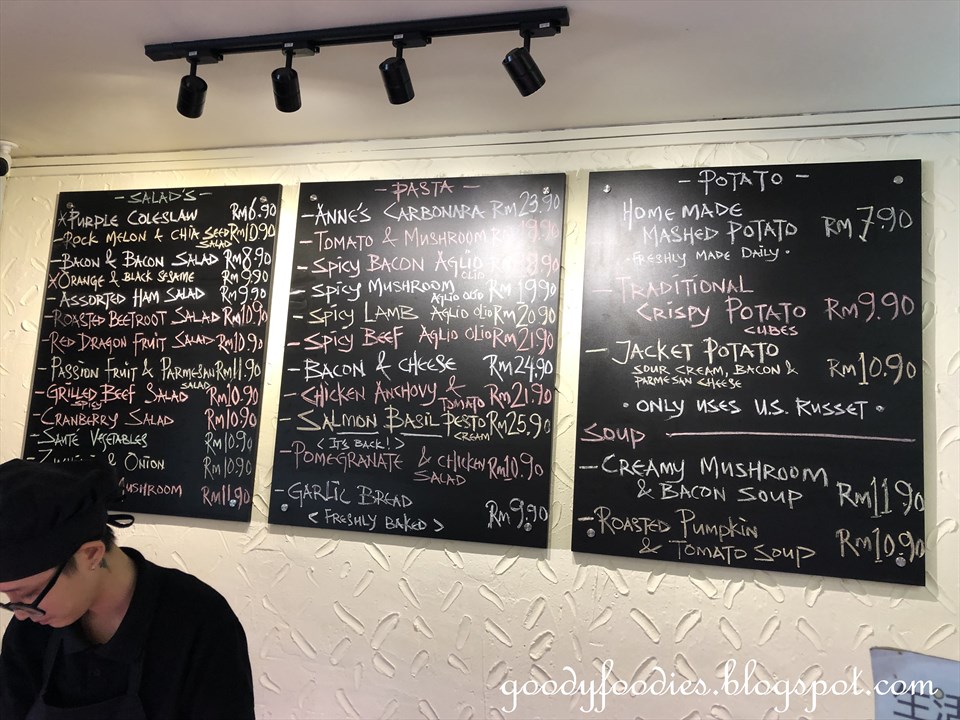 - SALAD'S -
PURPLE COLESLAW RM6.90
- ROCK MELON & CHIA SEED SALAD RM10.90
- BACON & BACON SALAD RM8.90
ORANGE & BLACK SESAME RM9.90
- ASSORTED HAM SALAD RM9.90
- ROASTED BEETROOT SALAD RM10.90
RED DRAGON FRUIT SALAD RM10.90
PASSION FRUIT & PARMESAN SALAD RM11.90
- GRILLED BEEF SALAD RM10.90
SPICY
- CRANBERRY SALAD RM10.90
- SAUTE VEGETABLES RM10.90
& ONION RM10.90
MUSHROOM RM11.90
- PASTA -
- ANNE'S CARBONARA RM23.90
- TOMATO & MUSHROOM
- SPICY BACON AGLIO OLIO
- SPICY MUSHROOM AGLIO OLIO RM19.90
- SPICY LAMB AGLIO OLIO RM20.90
- SPICY BEEF AGLIO OLIO RM21.90
- BACON & CHEESE RM24.90
- CHICKEN ANCHOVY & TOMATO RM21.90
- SALMON BASIL PESTO CREAM RM25.90
< IT'S BACK! >
- POMEGRANATE & CHICKEN SALAD RM10.90
- GARLIC BREAD RM9.90
< FRESHLY BAKED >
- POTATO -
HOME MADE
MASHED POTATO RM7.90
· FRESHLY MADE DAILY ·
- TRADITIONAL
CRISPY POTATO RM9.90
CUBES
- JACKET POTATO RM10.90
SOUR CREAM, BACON &
PARMESAN CHEESE
· ONLY USES U.S. RUSSET ·
SOUP
- CREAMY MUSHROOM
& BACON SOUP RM11.90
- ROASTED PUMPKIN
& TOMATO SOUP RM10.90
生活
goodyfoodies.blogspot.com